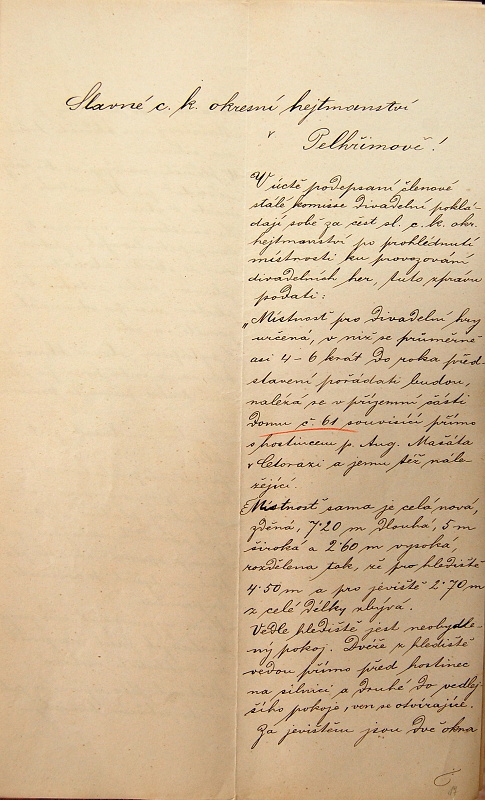 Slavné c. k. okresní hejtmanství
v
Pelhřimově!
V úctě podepsaní členové
stálé komisse divadelní poklá-
dají sobě za čest sl. c. k. okr.
hejtmanství po prohlédnutí
místnosti ku provozování
divadelních her, tuto zprávu
podati:
„Místnosť pro divadelní hry
určená, v níž se průměrně
asi 4-6 krát do roka před-
stavení pořádati budou,
nalézá se v přízemní části
domu č. 61 souvisící přímo
s hostincem p. Aug. Mašáta
v Cetorazi a jemu též nále-
žející.
Místnosť sama je celá nová,
zděná, 7·20 m dlouhá, 5 m
široká a 2·60 m vysoká,
rozdělena tak, že pro hlediště
4·50 m a pro jeviště 2·70 m
z celé délky zbývá.
Vedle hlediště jest neobydle-
ný pokoj. Dvéře z hlediště
vedou přímo před hostinec
na silnici a druhé do vedlej-
šího pokoje, ven se otvírající.
Za jevištěm jsou dvě okna